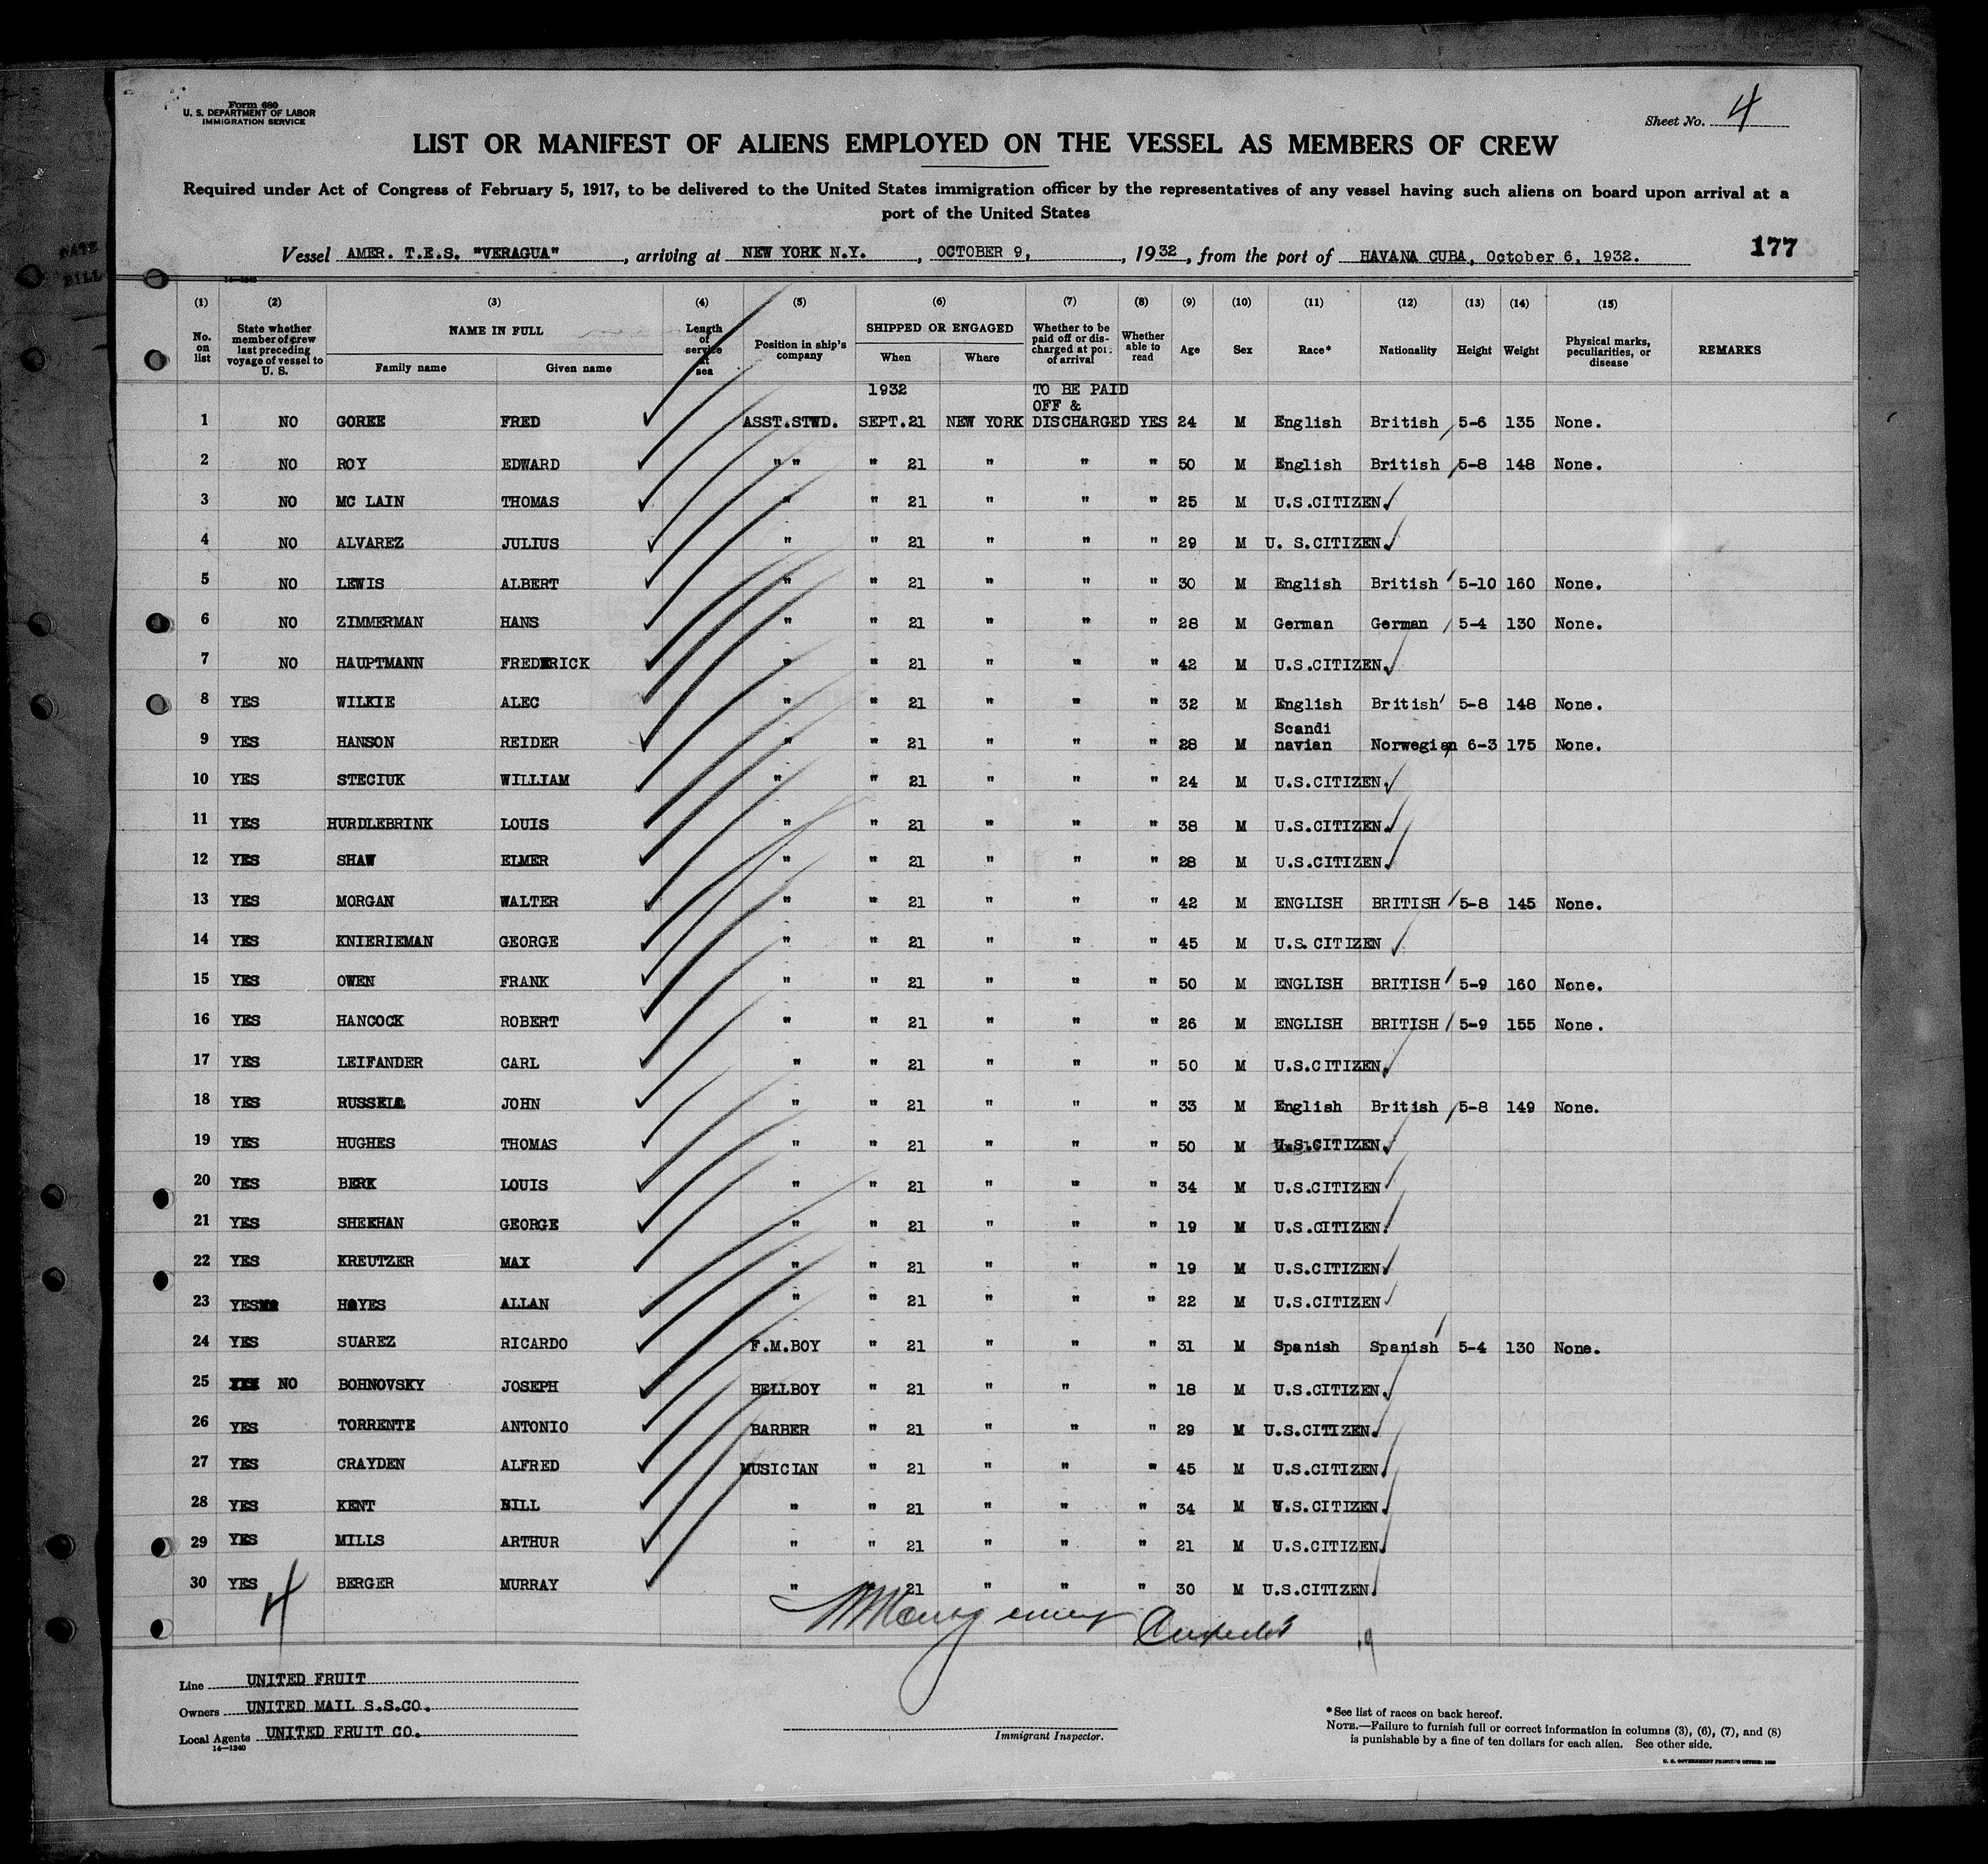 Form 680
U. S. DEPARTMENT OF LABOR
IMMIGRATION SERVICE
Sheet No. 4
LIST OR MANIFEST OF ALIENS EMPLOYED ON THE VESSEL AS MEMBERS OF CREW
Required under Act of Congress of February 5, 1917, to be delivered to the United States immigration officer by the representatives of any vessel having such aliens on board upon arrival at a
port of the United States
Vessel AMER. T.E.S. "VERAGUA", arriving at NEW YORK N.Y., OCTOBER 9, 1932, from the port of HAVANA CUBA, October 6, 1932.
177
(1) (2) (3) (4) (5) (6) (7) (8) (9) (10) (11) (12) (13) (14) (15)
No. on list
State whether member of crew last preceding voyage of vessel to U. S.
NAME IN FULL
Family name Given name
Length of service at sea
Position in ship's company
SHIPPED OR ENGAGED
When Where
Whether to be paid off or discharged at port of arrival
Whether able to read
Age Sex Race* Nationality Height Weight
Physical marks, peculiarities, or disease
REMARKS
1932 TO BE PAID
OFF &
1 NO GOREE FRED ASST.STWD. SEPT.21 NEW YORK DISCHARGED YES 24 M English British 5-6 135 None.
2 NO ROY EDWARD " " " 21 " " " 50 M English British 5-8 148 None.
3 NO MC LAIN THOMAS " " 21 " " " 25 M U.S.CITIZEN.
4 NO ALVAREZ JULIUS " " 21 " " " 29 M U. S.CITIZEN.
5 NO LEWIS ALBERT " " 21 " " " 30 M English British 5-10 160 None.
6 NO ZIMMERMAN HANS " " 21 " " " 28 M German German 5-4 130 None.
7 NO HAUPTMANN FREDERICK " " 21 " " " 42 M U.S.CITIZEN.
8 YES WILKIE ALEC " " 21 " " " 32 M English British 5-8 148 None.
Scandi
9 YES HANSON REIDER " " 21 " " " 28 M navian Norwegian 6-3 175 None.
10 YES STECIUK WILLIAM " " 21 " " " 24 M U.S.CITIZEN.
11 YES HURDLEBRINK LOUIS " " 21 " " " 38 M U.S.CITIZEN.
12 YES SHAW ELMER " " 21 " " " 28 M U.S.CITIZEN.
13 YES MORGAN WALTER " " 21 " " " 42 M ENGLISH BRITISH 5-8 145 None.
14 YES KNIERIEMAN GEORGE " " 21 " " " 45 M U.S. CITIZEN
15 YES OWEN FRANK " " 21 " " " 50 M ENGLISH BRITISH 5-9 160 None.
16 YES HANCOCK ROBERT " " 21 " " " 26 M ENGLISH BRITISH 5-9 155 None.
17 YES LEIFANDER CARL " " 21 " " " 50 M U.S.CITIZEN.
18 YES RUSSELL JOHN " " 21 " " " 33 M English British 5-8 149 None.
19 YES HUGHES THOMAS " " 21 " " " 50 M U.S.CITIZEN.
20 YES BERK LOUIS " " 21 " " " 34 M U.S.CITIZEN
21 YES SHEEHAN GEORGE " " 21 " " " 19 M U.S.CITIZEN.
22 YES KREUTZER MAX " " 21 " " " 19 M U.S.CITIZEN.
23 YES HAYES ALLAN " " 21 " " " 22 M U.S.CITIZEN
24 YES SUAREZ RICARDO F.M.BOY " 21 " " " 31 M Spanish Spanish 5-4 130 None.
25 NO BOHNOVSKY JOSEPH BELLBOY " 21 " " " 18 M U.S.CITIZEN.
26 YES TORRENTE ANTONIO BARBER " 21 " " " 29 M U.S.CITIZEN.
27 YES CRAYDEN ALFRED MUSICIAN " 21 " " " 45 M U.S.CITIZEN.
28 YES KENT BILL " " 21 " " " 34 M U.S.CITIZEN.
29 YES MILLS ARTHUR " " 21 " " " 21 M U.S.CITIZEN.
30 YES BERGER MURRAY " " 21 " " " 30 M U.S.CITIZEN.
4
Line UNITED FRUIT
Owners UNITED MAIL S.S.CO.
Local Agents UNITED FRUIT CO.
14—1240
Immigrant Inspector.
*See list of races on back hereof.
NOTE.—Failure to furnish full or correct information in columns (3), (6), (7), and (8)
is punishable by a fine of ten dollars for each alien. See other side.